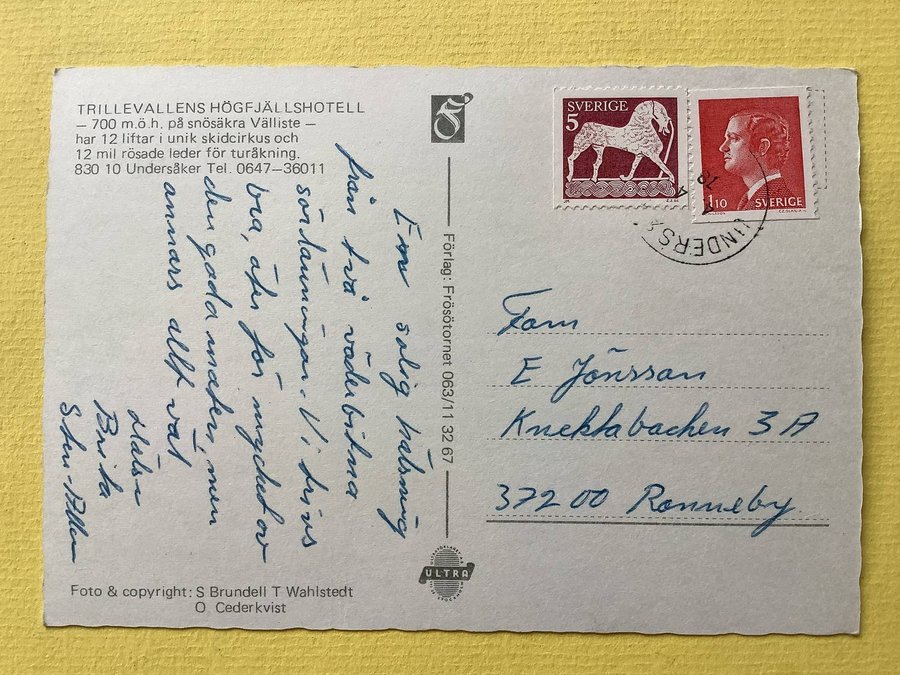 TRILLEVALLENS HÖGFJÄLLSHOTELL
— 700 m.ö.h. på snösäkra Välliste —
har 12 liftar i unik skidcirkus och
12 mil rösade leder för turåkning.
830 10 Undersåker Tel. 0647–36011
En solig hälsning
från två väderbitna
sörlänningar. Vi trivs
bra, äter för mycket av
den goda maten, men
annars allt väl
Hälsn
Britta
Sten-
Förlag: Frösötornet 063/11 32 67
ULTRA
Foto & copyright: S Brundell T Wahlstedt
O. Cederkvist
SVERIGE
5
1.10 SVERIGE
UNDERS
Fam
E Jönsson
Knektabacken 3 A
372 00 Ronneby